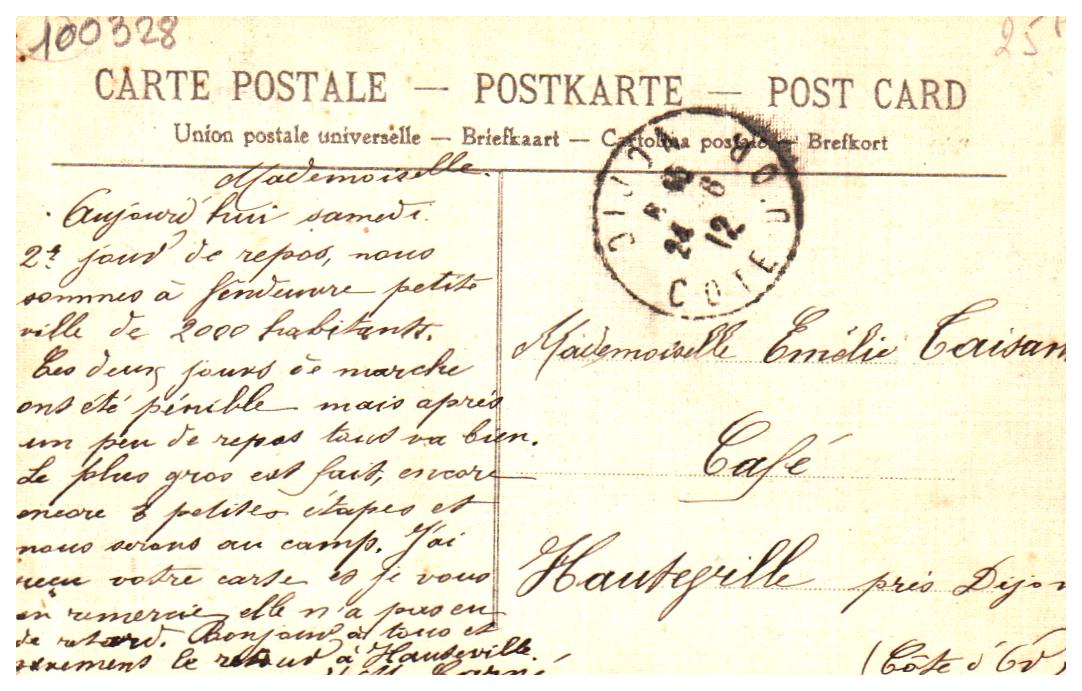 100328
25
CARTE POSTALE — POSTKARTE — POST CARD
Union postale universelle — Briefkaart — Cartolina postale — Brefkort
DIJON
COTE D'OR
24 12
Mademoiselle.
Aujourd'hui samedi.
2e jour de repos, nous
sommes à Vendeuvre petite
ville de 2000 habitants.
Les deux jours de marche
ont été pénible mais après
un peu de repos tout va bien.
Le plus gros est fait, encore
encore 3 petites étapes et
nous serons au camp. J'ai
reçu votre carte et je vous
en remercie, elle n'a pas eu
de retard. Bonjour à tous et
le retour à Hauteville.
Mademoiselle Emélie Taisan
Café
Hauteville près Dijon
(Côte d'Or)